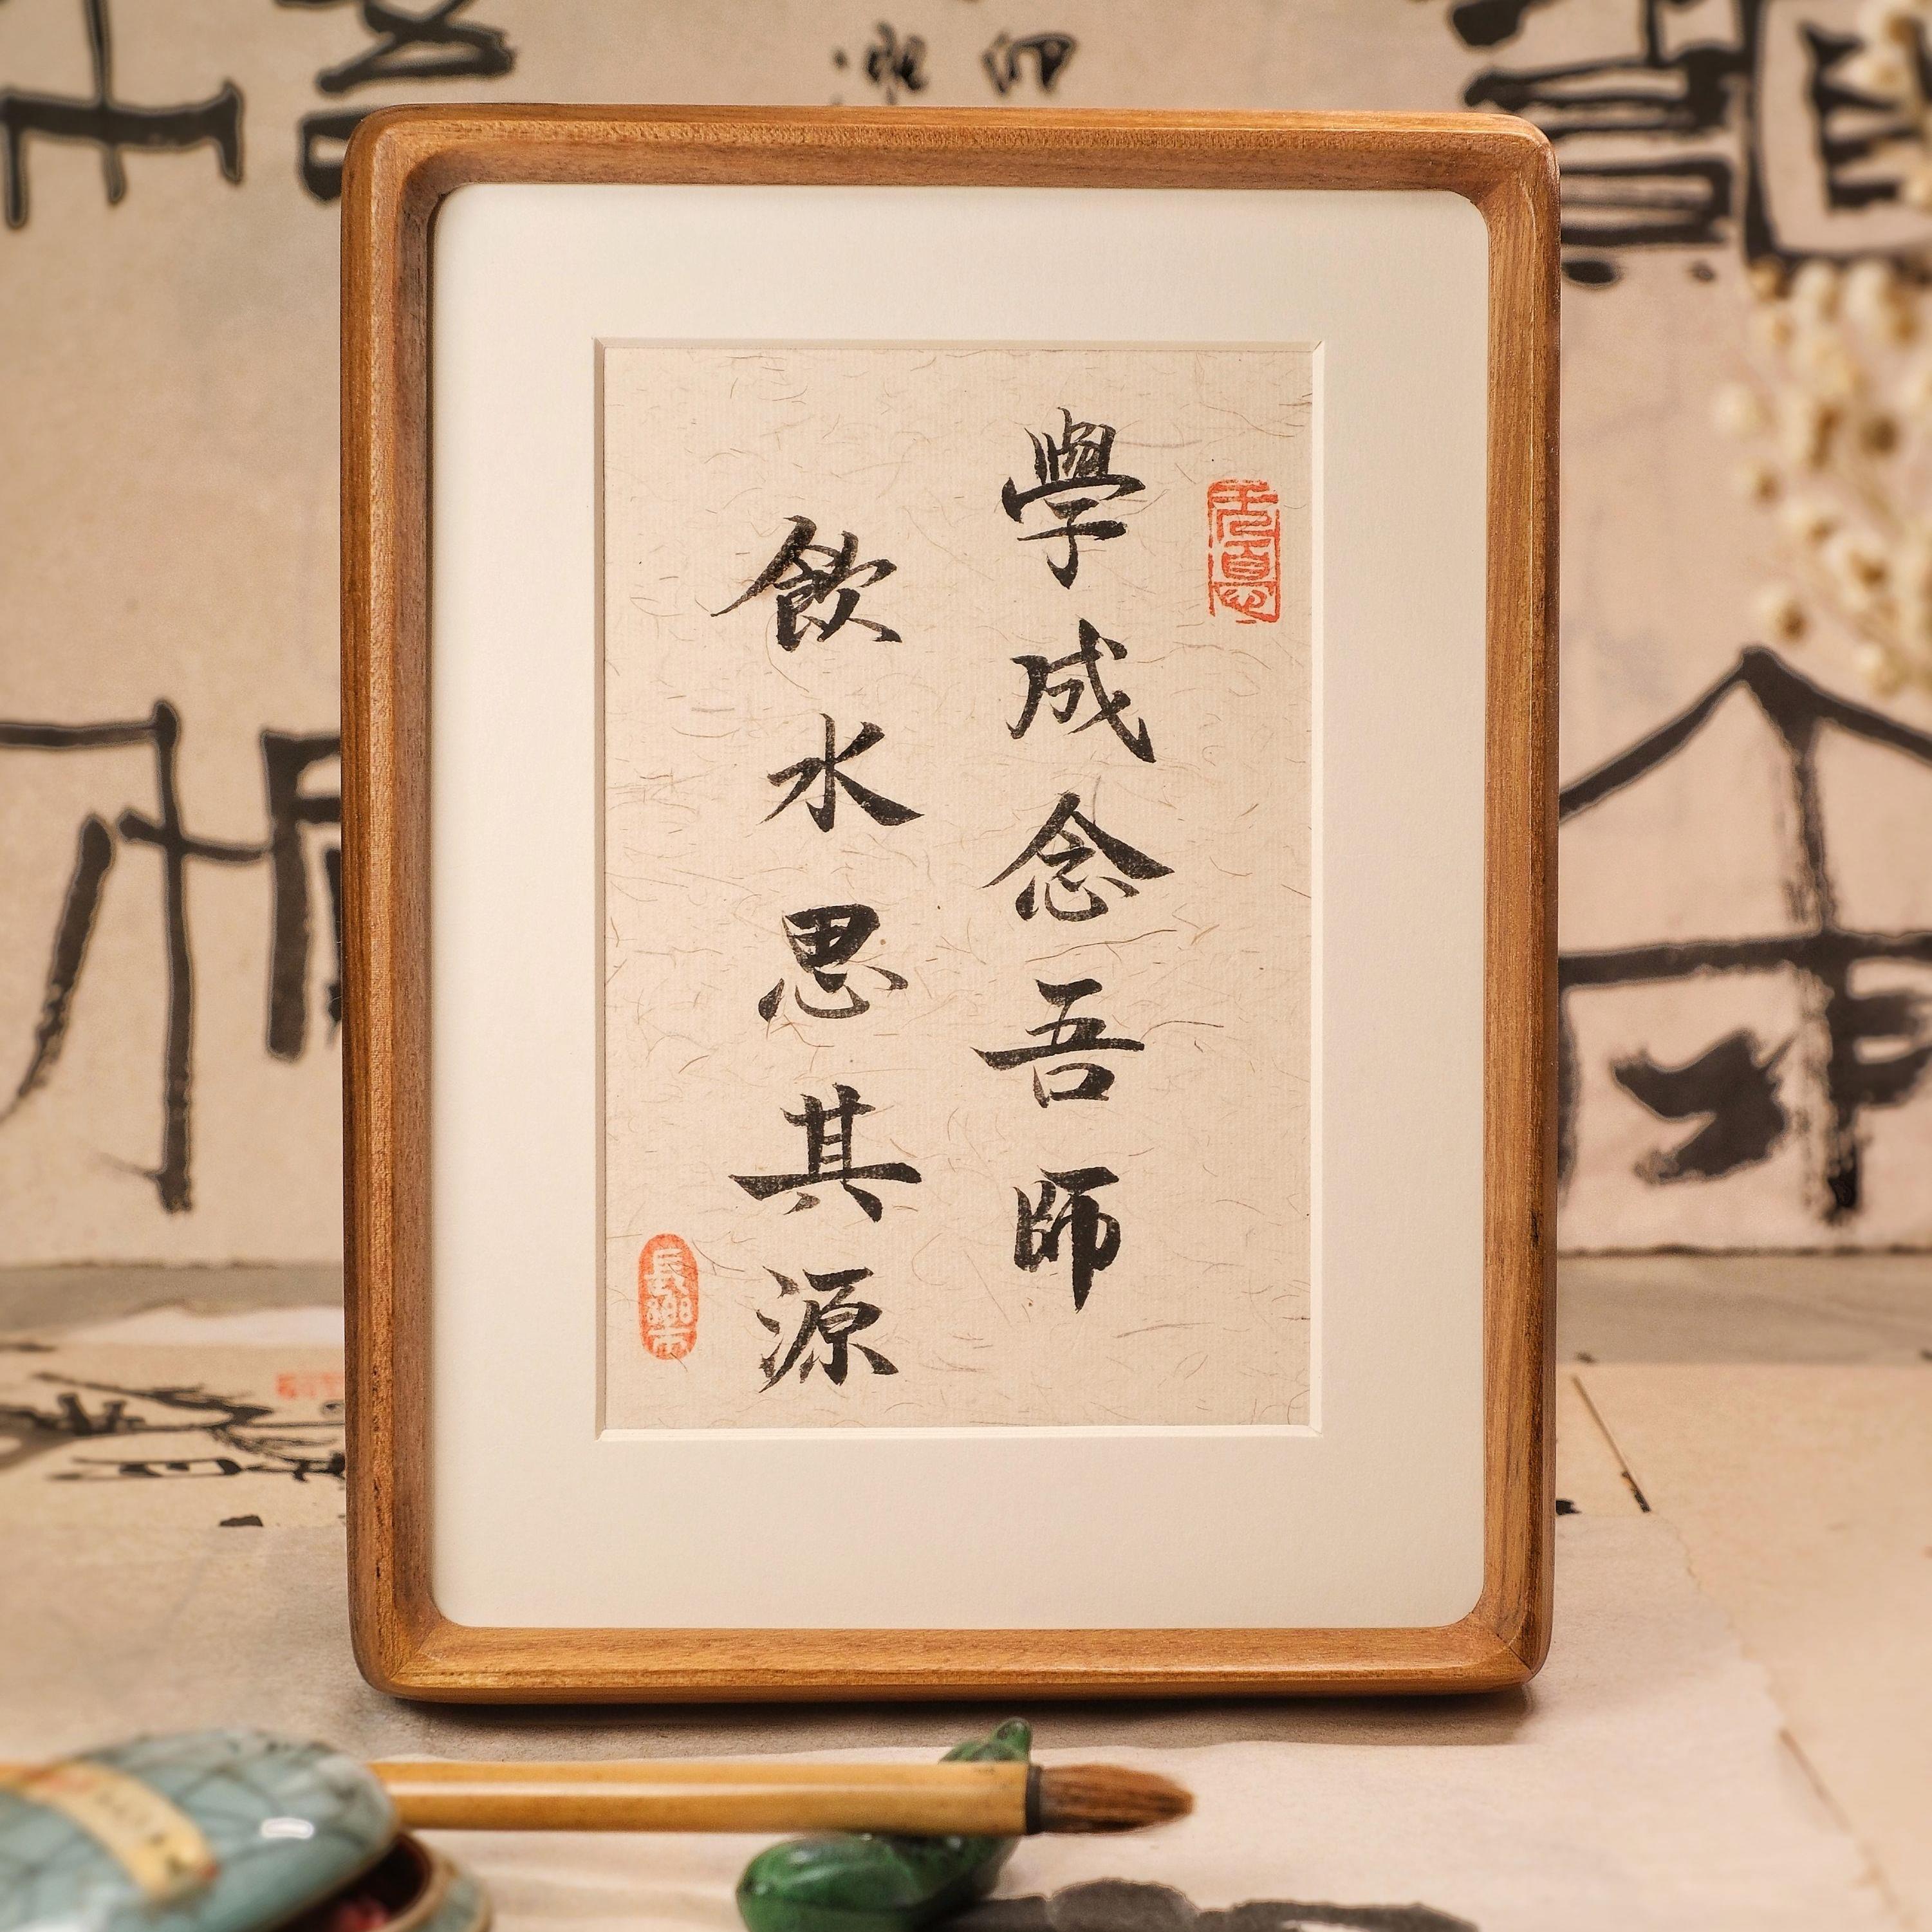 學成念吾師
飲水思其源
長樂